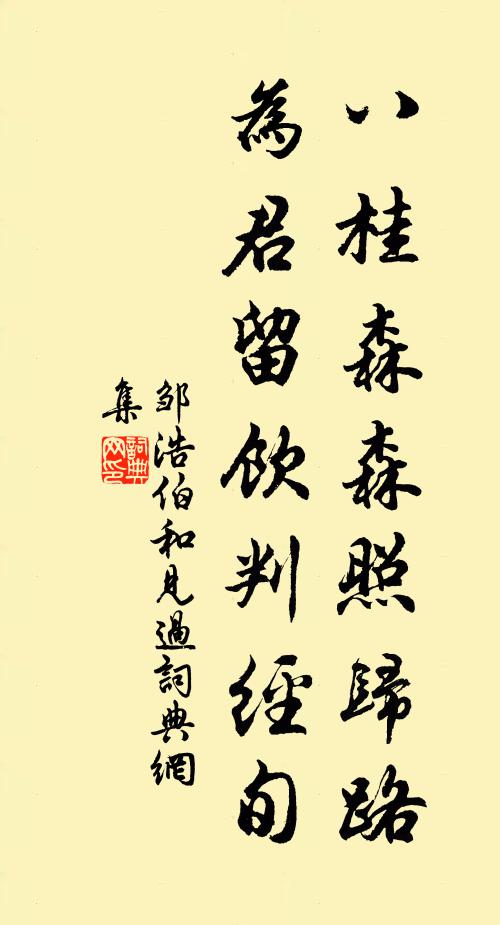 八桂森森照歸路
為君留飲判經旬
邹浩伯和見過詞典網
集
詞典
网印